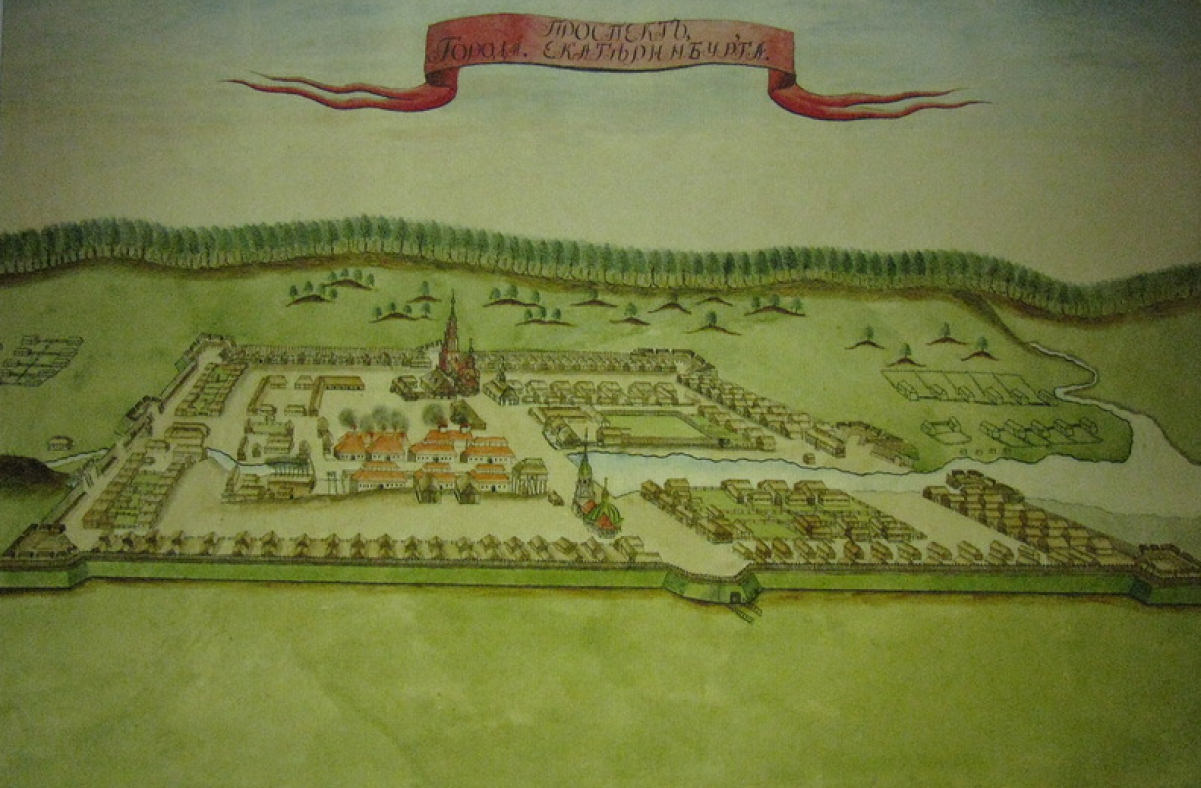 ПРОСПЕКТЪ,
ГОРОДА. ЕКАТЕРИНБУРГА.